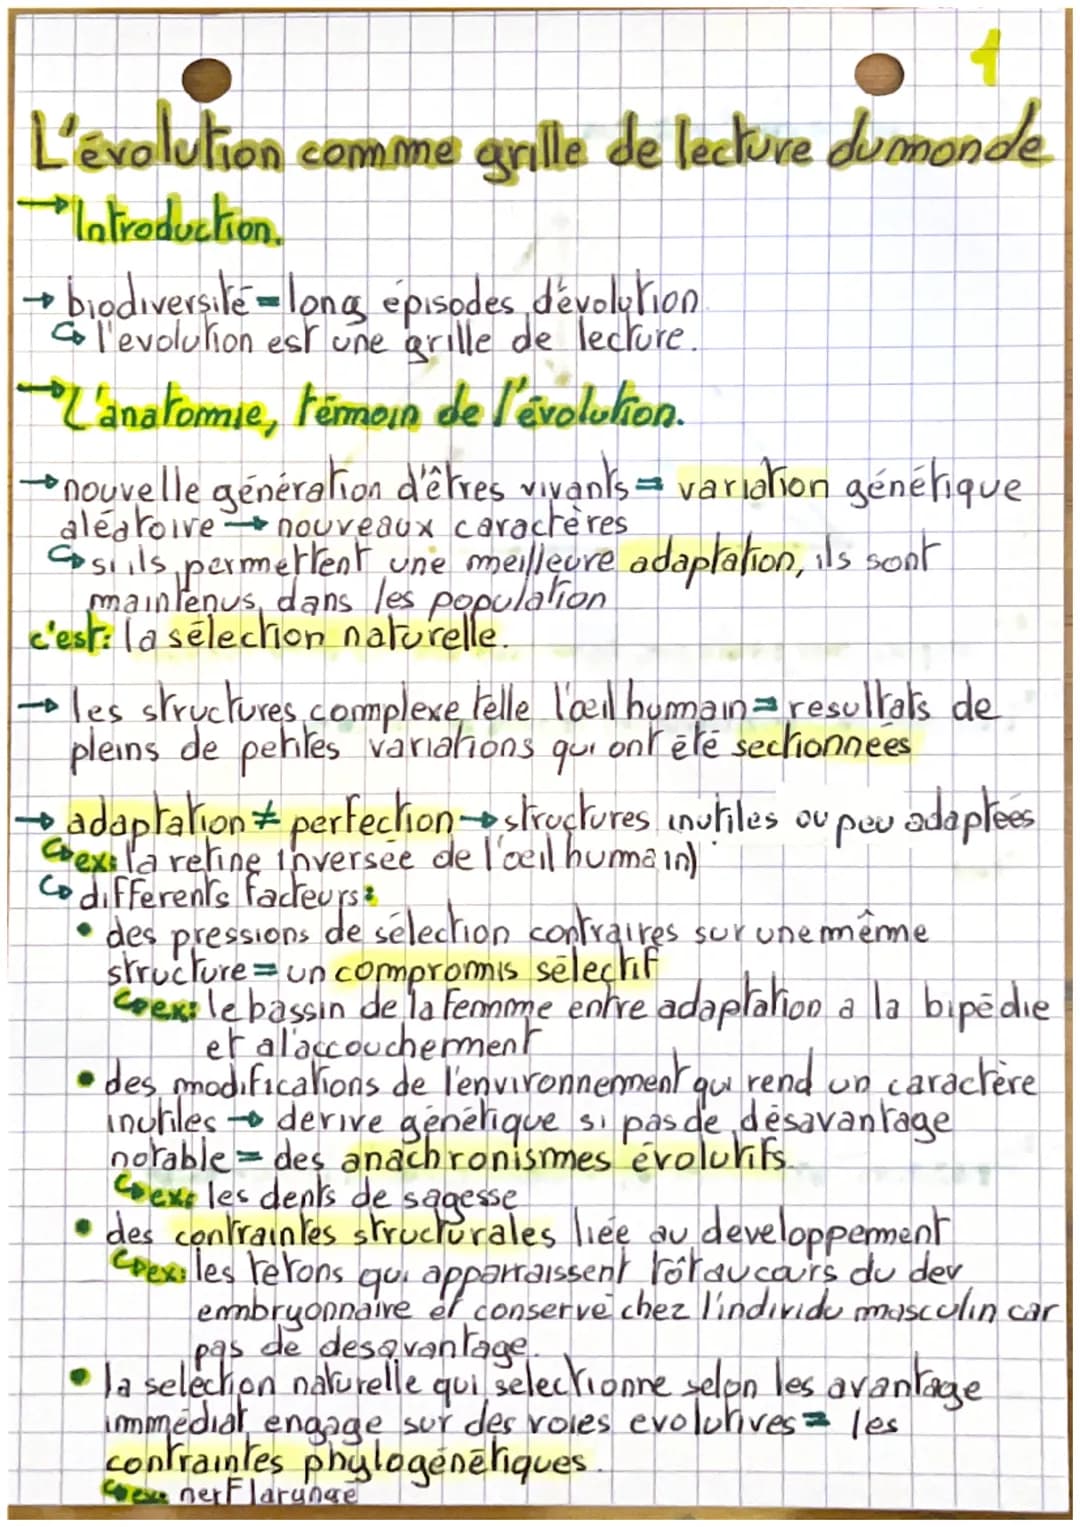 1
L'évolution comme grille de lecture du monde
→ Introduction.
→ biodiversité = longs épisodes d'évolution.
↪ l'evolution est une grille de lecture.
→ L'anatomie, témoin de l'évolution.
→ nouvelle génération d'êtres vivants = variation génétique
aléatoire → nouveaux caractères
↪ si ils permettent une meilleure adaptation, ils sont
maintenus dans les population
c'est: la sélection naturelle.
→ les structures complexe telle l'œil humain = resultats de
pleins de petites variations qui ont été sectionnées
→ adaptation ≠ perfection → structures inutiles ou peu adaptées
↪ ex: la retine inversée de l'œil humain)
↪ differents facteurs:
• des pressions de sélection contraires sur une même
structure = un compromis sélectif
↪ ex: le bassin de la femme entre adaptation a la bipédie
et a l'accouchement
• des modifications de l'environnement qui rend un caractère
inutiles → derive génétique si pas de désavantage
notable = des anachronismes évolutifs.
↪ ex: les dents de sagesse
• des contraintes structurales liée au developpement
↪ ex: les tetons qui apparraissent tôt au cours du dev
embryonnaire et conservé chez l'individu masculin car
pas de desavantage.
• la selection naturelle qui selectionne selon les avantage
immédiat engage sur des voies evolutives = les
contraintes phylogénétiques.
↪ ex: nerf larungé